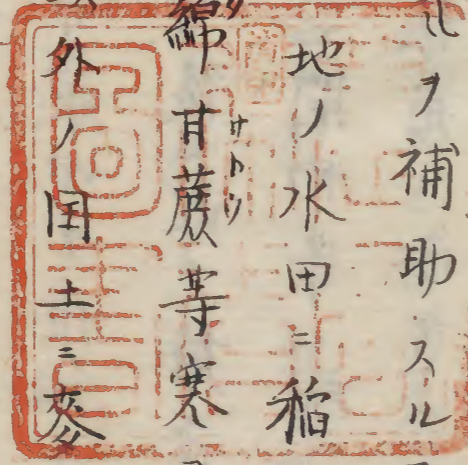 ルヲ補助スル
地ノ水田ニ稲
綿甘蔗等寒
外ノ国土ニ麥